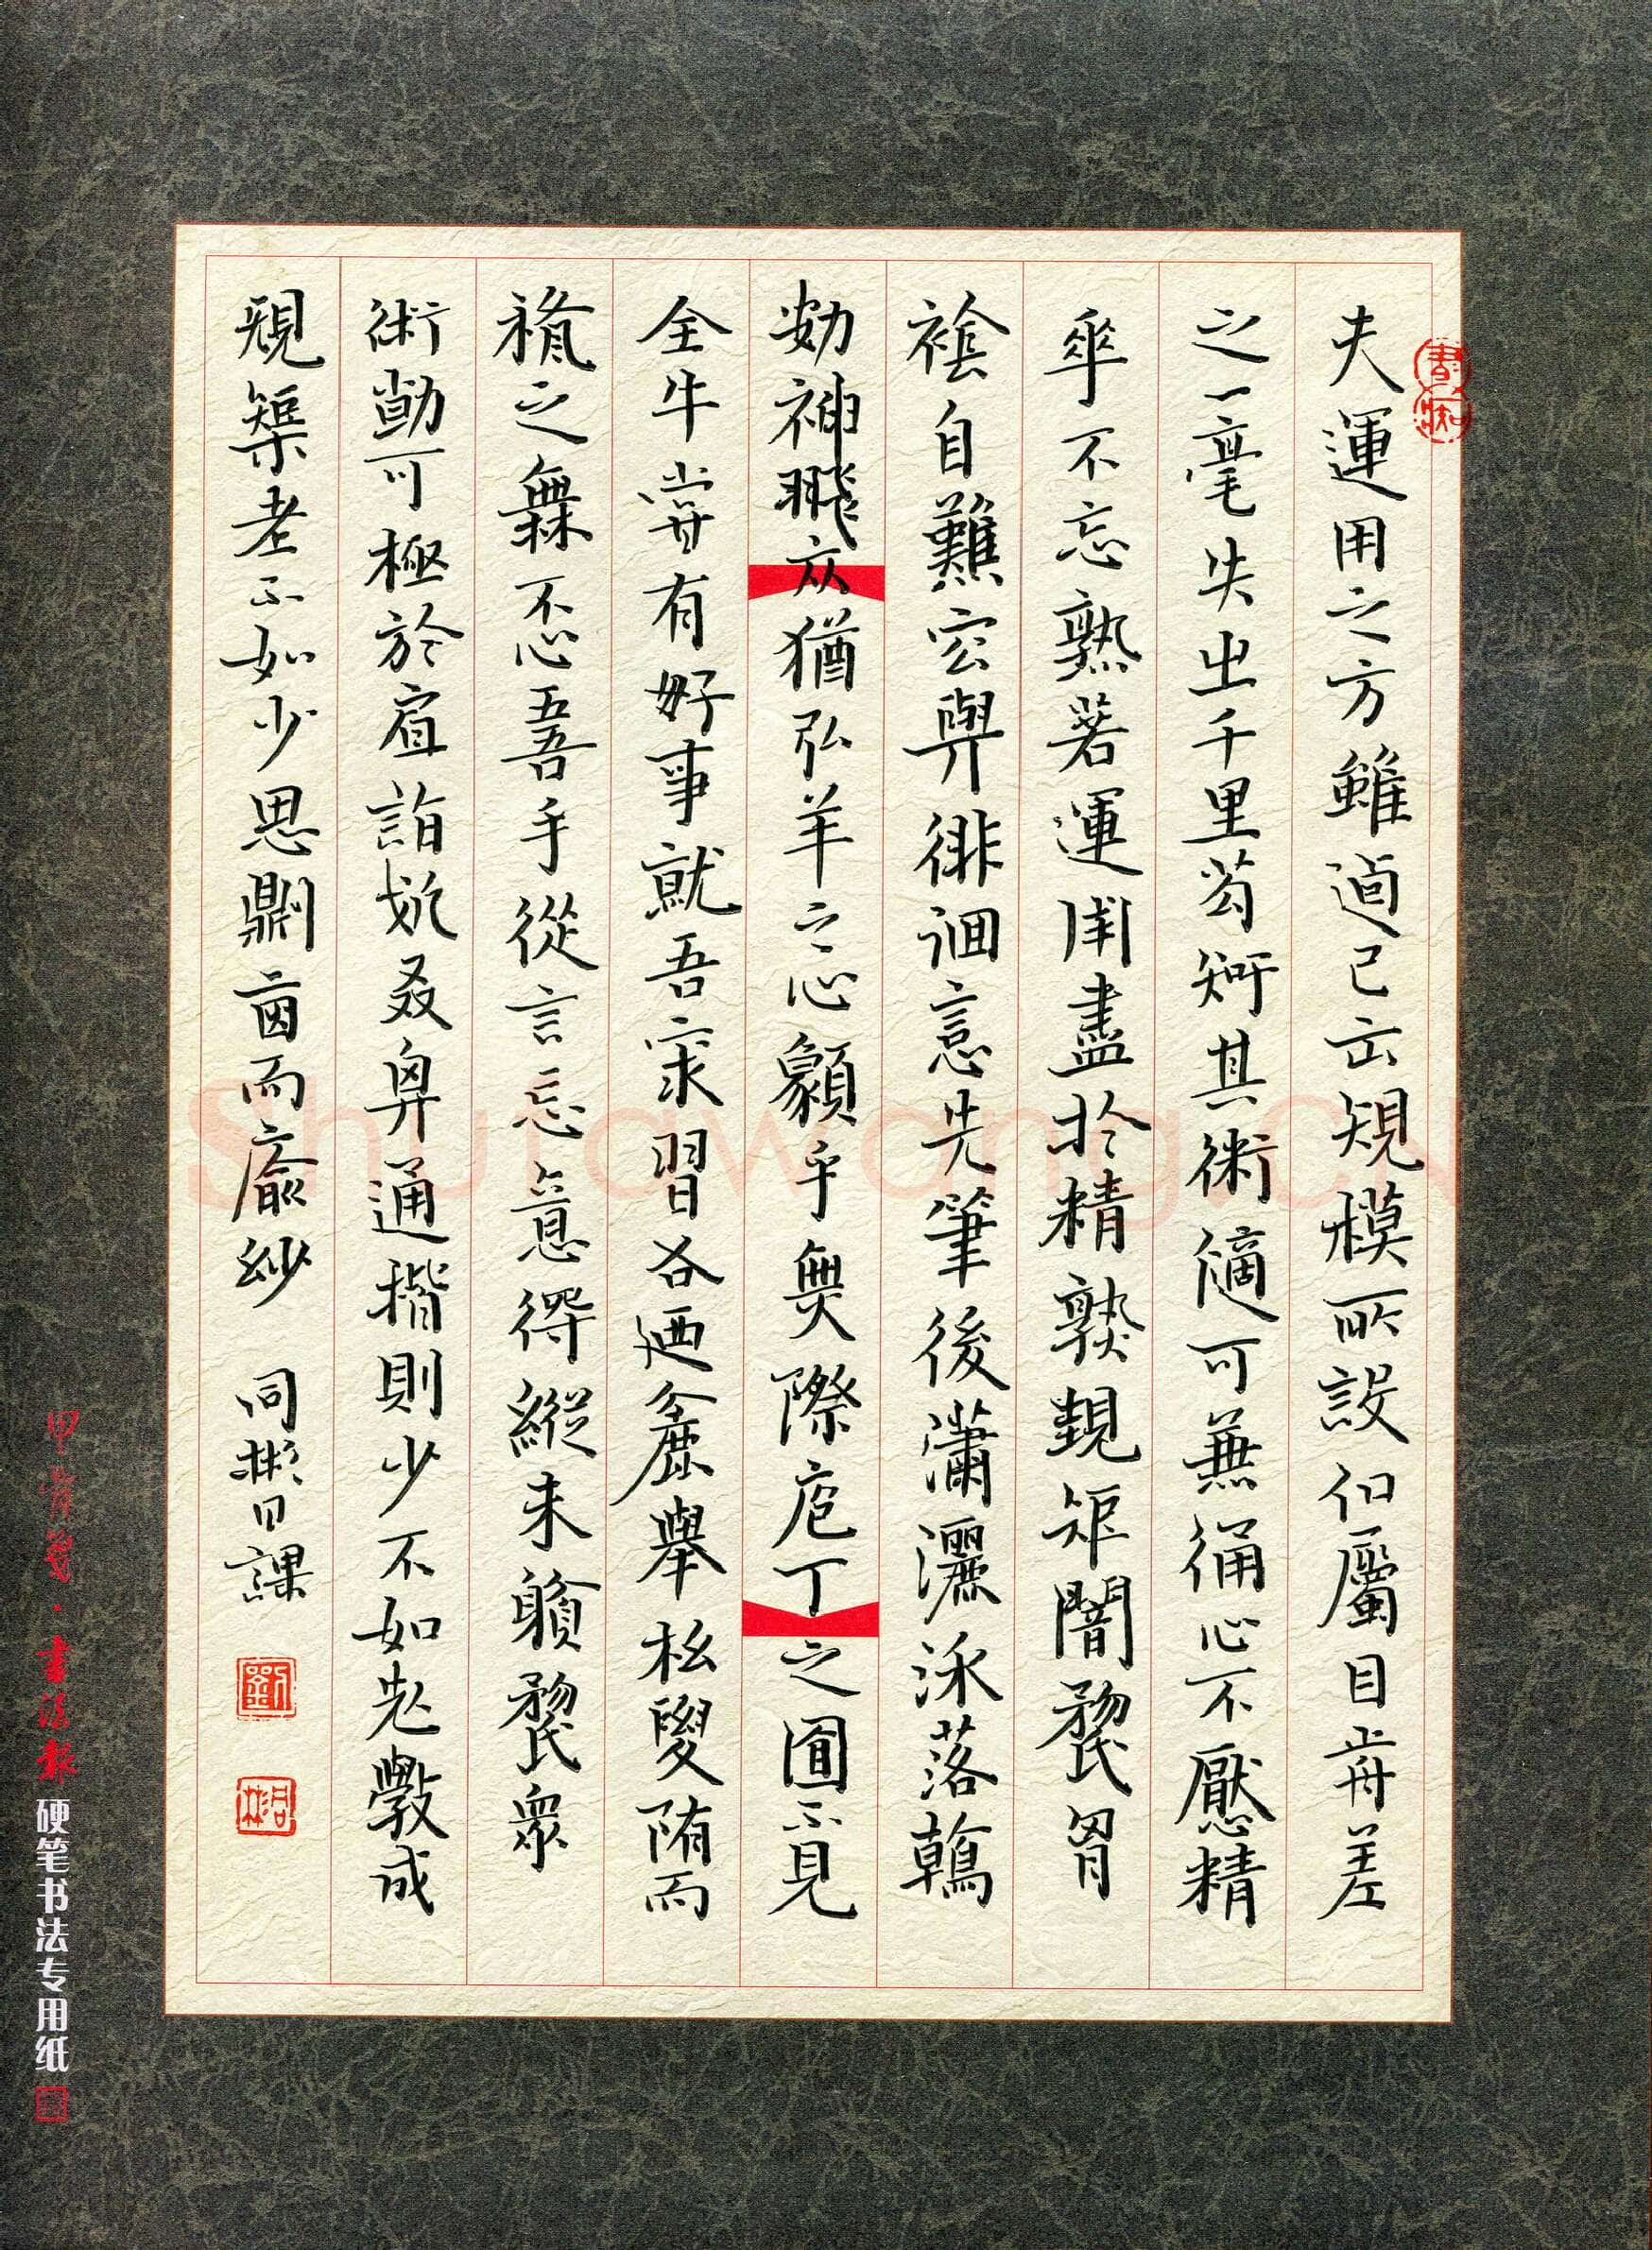 夫運用之方雖逌己出規模所設伩屬目前差
之一毫失出千里苟知其術適可兼通心不厭精
卒不忘熟若運用盡於精熟規矩闇於胷
襟自難容與徘徊意先筆後瀟灑流落翰
妙神飛亦猶弘羊之心豫乎無際庖丁之圖不見
全牛嘗有好事就吾求習吾迺麁舉松變隨而
授之無不心吾手從言忘意得縱未窮衆
術斷可極於所詣矣若思通楷則少不如老學成
規矩老不如少思則老而逾妙 同彬日課
甲骨箋·書法報 硬笔书法专用纸
Shufawang.cn